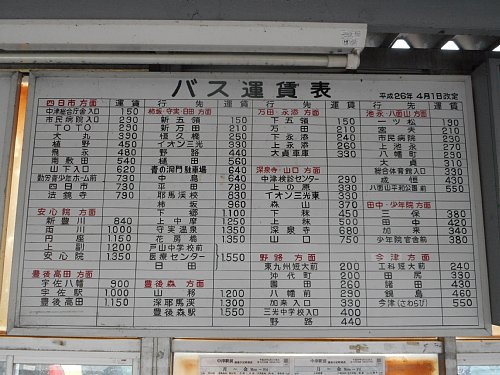 バス運賃表
平成26年 4月1日改定
四日市方面 運賃
中津総合庁舎入口 150
市民病院入口 290
TOTO 290
大丸 390
植野 450
鬼永 480
南敷田 540
山下入口 620
勤労青少年ホーム前 630
四日市 730
法鏡寺 790
安心院方面
新豊川 840
両川 1000
円座 1150
上副 1200
安心院 1350
豊後高田方面
宇佐八幡 900
宇佐駅 1000
豊後高田 1150
柿坂・守実・日田方面
行先 運賃
新五領 150
新万田 210
恒久橋 290
イオン三光 390
野路 440
樋田 560
青の洞門駐車場 640
中島 640
平田 780
耶馬溪校前
柿坂 960
下郷 1100
上中摩 1250
守実温泉 1350
花房橋 1350
戸山中学校前
医療センター 1550
日田
豊後森方面
山移 1200
深耶馬渓 1300
豊後森駅 1550
万田・永添方面
行先 運賃
下五領 150
万田 210
下永添 240
上永添 260
大貞車庫 330
深泉寺・山口方面
中津検診センター 290
上の原 330
イオン三光東 330
森 370
下秣 450
上秣 500
深泉寺 680
山口 750
野路方面
東九州短大前 200
沖代町 200
園田 260
八幡前 290
加来入口 330
三光中学校入口 400
野路 440
池永・八面山方面
行先 運賃
一ツ松 190
宮夫 210
市民病院 290
上池永 270
八幡町 290
大貞 310
総合体育館入口 330
成恒 430
八面山平和公園前 550
田中・少年院方面
三保 380
田中 420
加来 340
少年院官舎前 380
今津方面
工科短大前 240
田尻 330
諸田 430
鍋島 460
今津(さわらび) 550